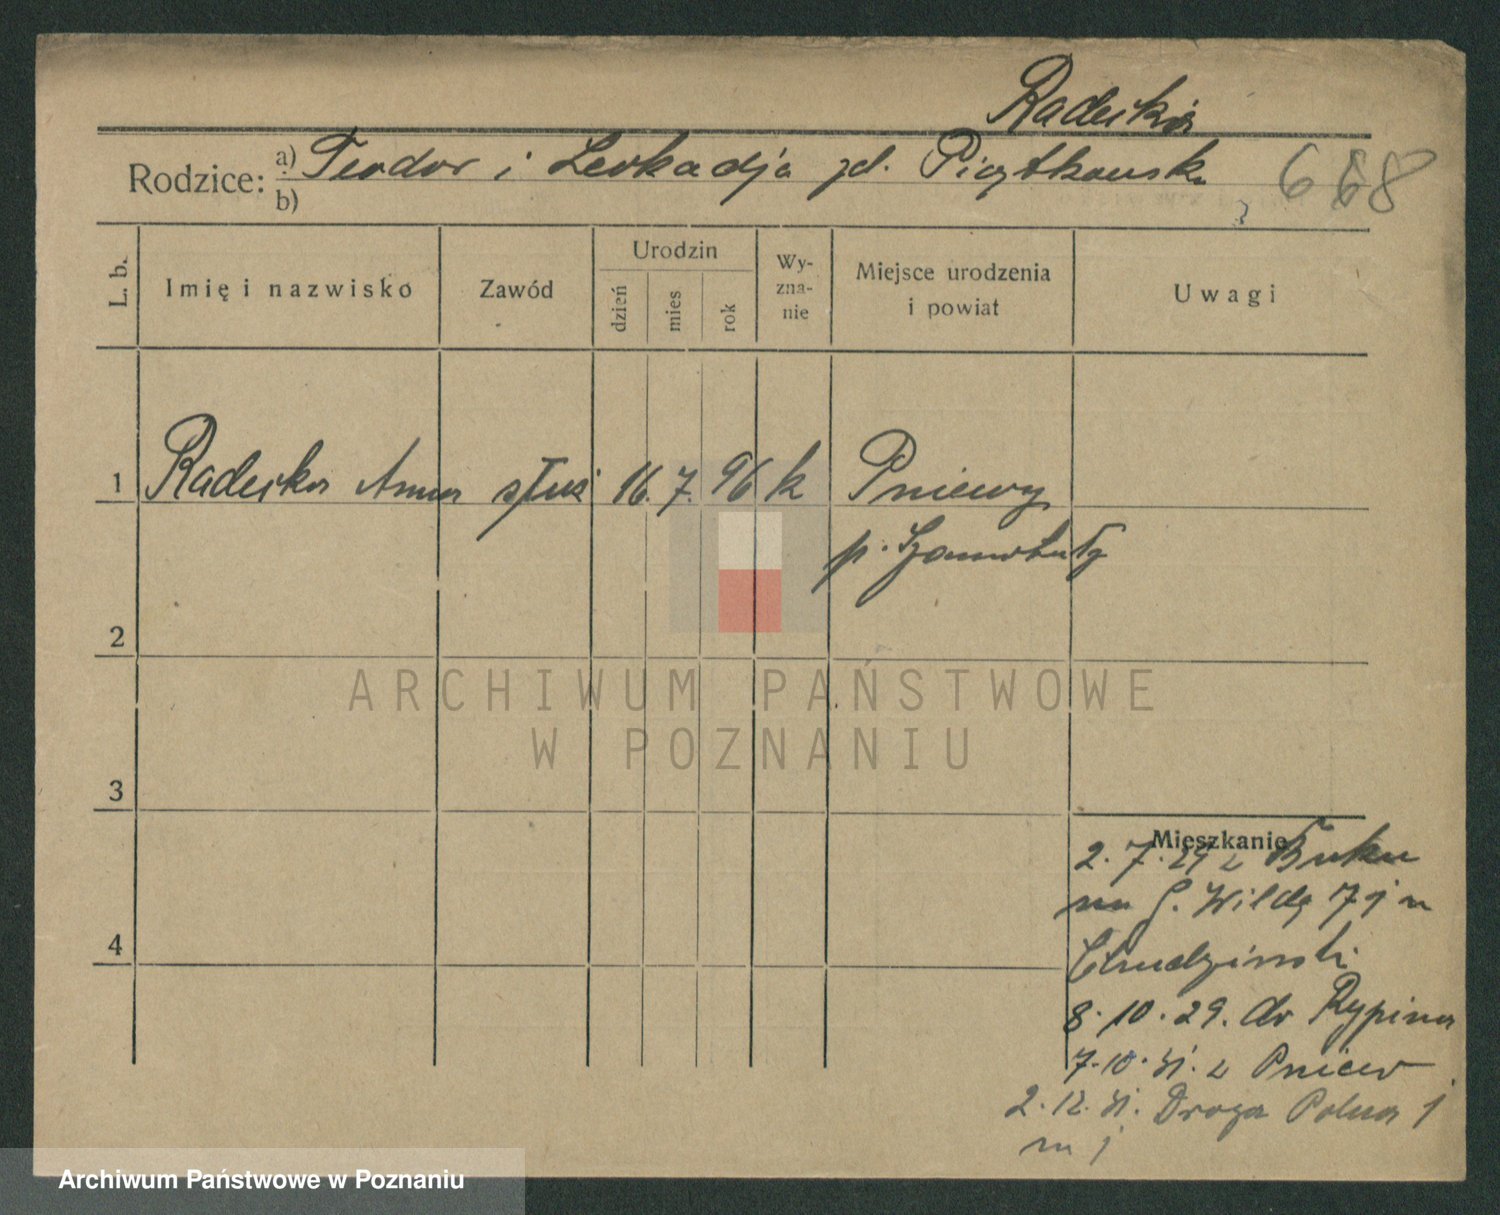 Radecka
Rodzice: a) Teodor i Leokadja zd. Piątkowska
b)
668
L. b.
Imię i nazwisko
Zawód
Urodzin
dzień
mies
rok
Wy-
zna-
nie
Miejsce urodzenia
i powiat
Uwagi
1 Radecka Anna służ 16. 7. 96 k Pniewy
p. Szamotuły
2
ARCHIWUM PAŃSTWOWE
W POZNANIU
3
Mieszkanie
2. 7. 29 z Buku
na G. Wildę 7j u
4
Chudziński
8. 10. 29. do Rypina
7. 10. 31. z Pniew
2. 12. 31. Droga Polna 1
m 1
Archiwum Państwowe w Poznaniu